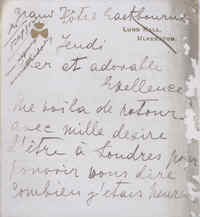 Grand Hôtel Eastbourne
LUND HALL,
ULVERSTON.
Jeudi
Cher et adorable
Excellence
Me voila de retour
avec mille desire
d'être à Londres pour
pouvoir vous dire
combien j'etais heureu